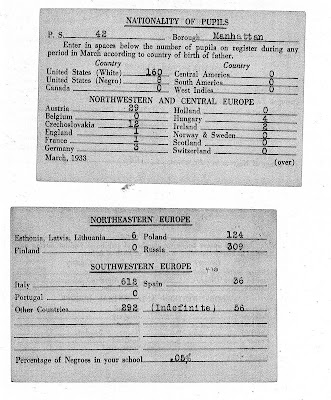 NATIONALITY OF PUPILS
P. S. 42 Borough Manhattan
Enter in spaces below the number of pupils on register during any
period in March according to country of birth of father.
Country Country
United States (White) 160 Central America 0
United States (Negro) 8 South America 0
Canada 0 West Indies 0
NORTHWESTERN AND CENTRAL EUROPE
Austria 29 Holland 0
Belgium 0 Hungary 4
Czechoslovakia 12 Ireland 2
England 1 Norway & Sweden 0
France Scotland 0
Germany 3 Switzerland 0
March, 1933 (over)
NORTHEASTERN EUROPE
Esthonia, Latvia, Lithuania 6 Poland 124
Finland 0 Russia 309
SOUTHWESTERN EUROPE
Italy 612 Spain 36
Portugal 0
Other Countries 292 (Indefinite) 56
Percentage of Negroes in your school .05%